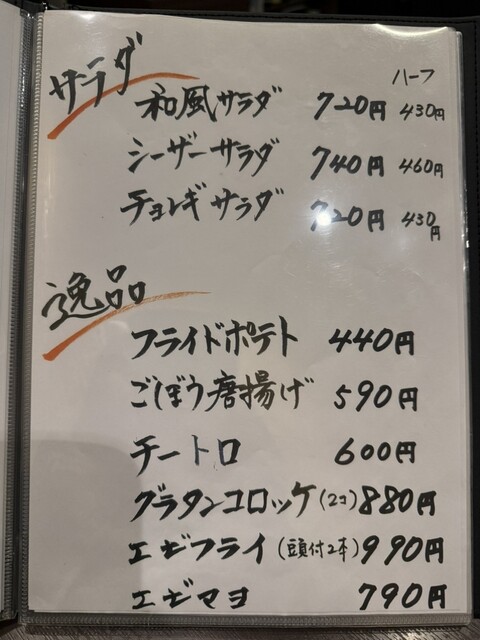 サラダ
ハーフ
和風サラダ 720円 430円
シーザーサラダ 740円 460円
チョレギサラダ 720円 430円
逸品
フライドポテト 440円
ごぼう唐揚げ 590円
チートロ 600円
グラタンコロッケ(2コ) 880円
エビフライ(頭付2本) 990円
エビマヨ 790円